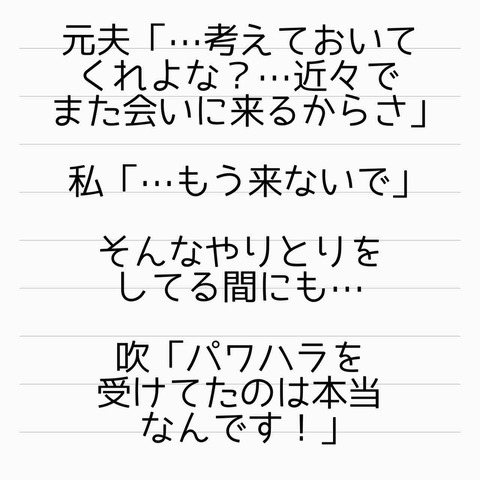 元夫「…考えておいて
くれよな？…近々で
また会いに来るからさ」
私「…もう来ないで」
そんなやりとりを
してる間にも…
吹「パワハラを
受けてたのは本当
なんです！」